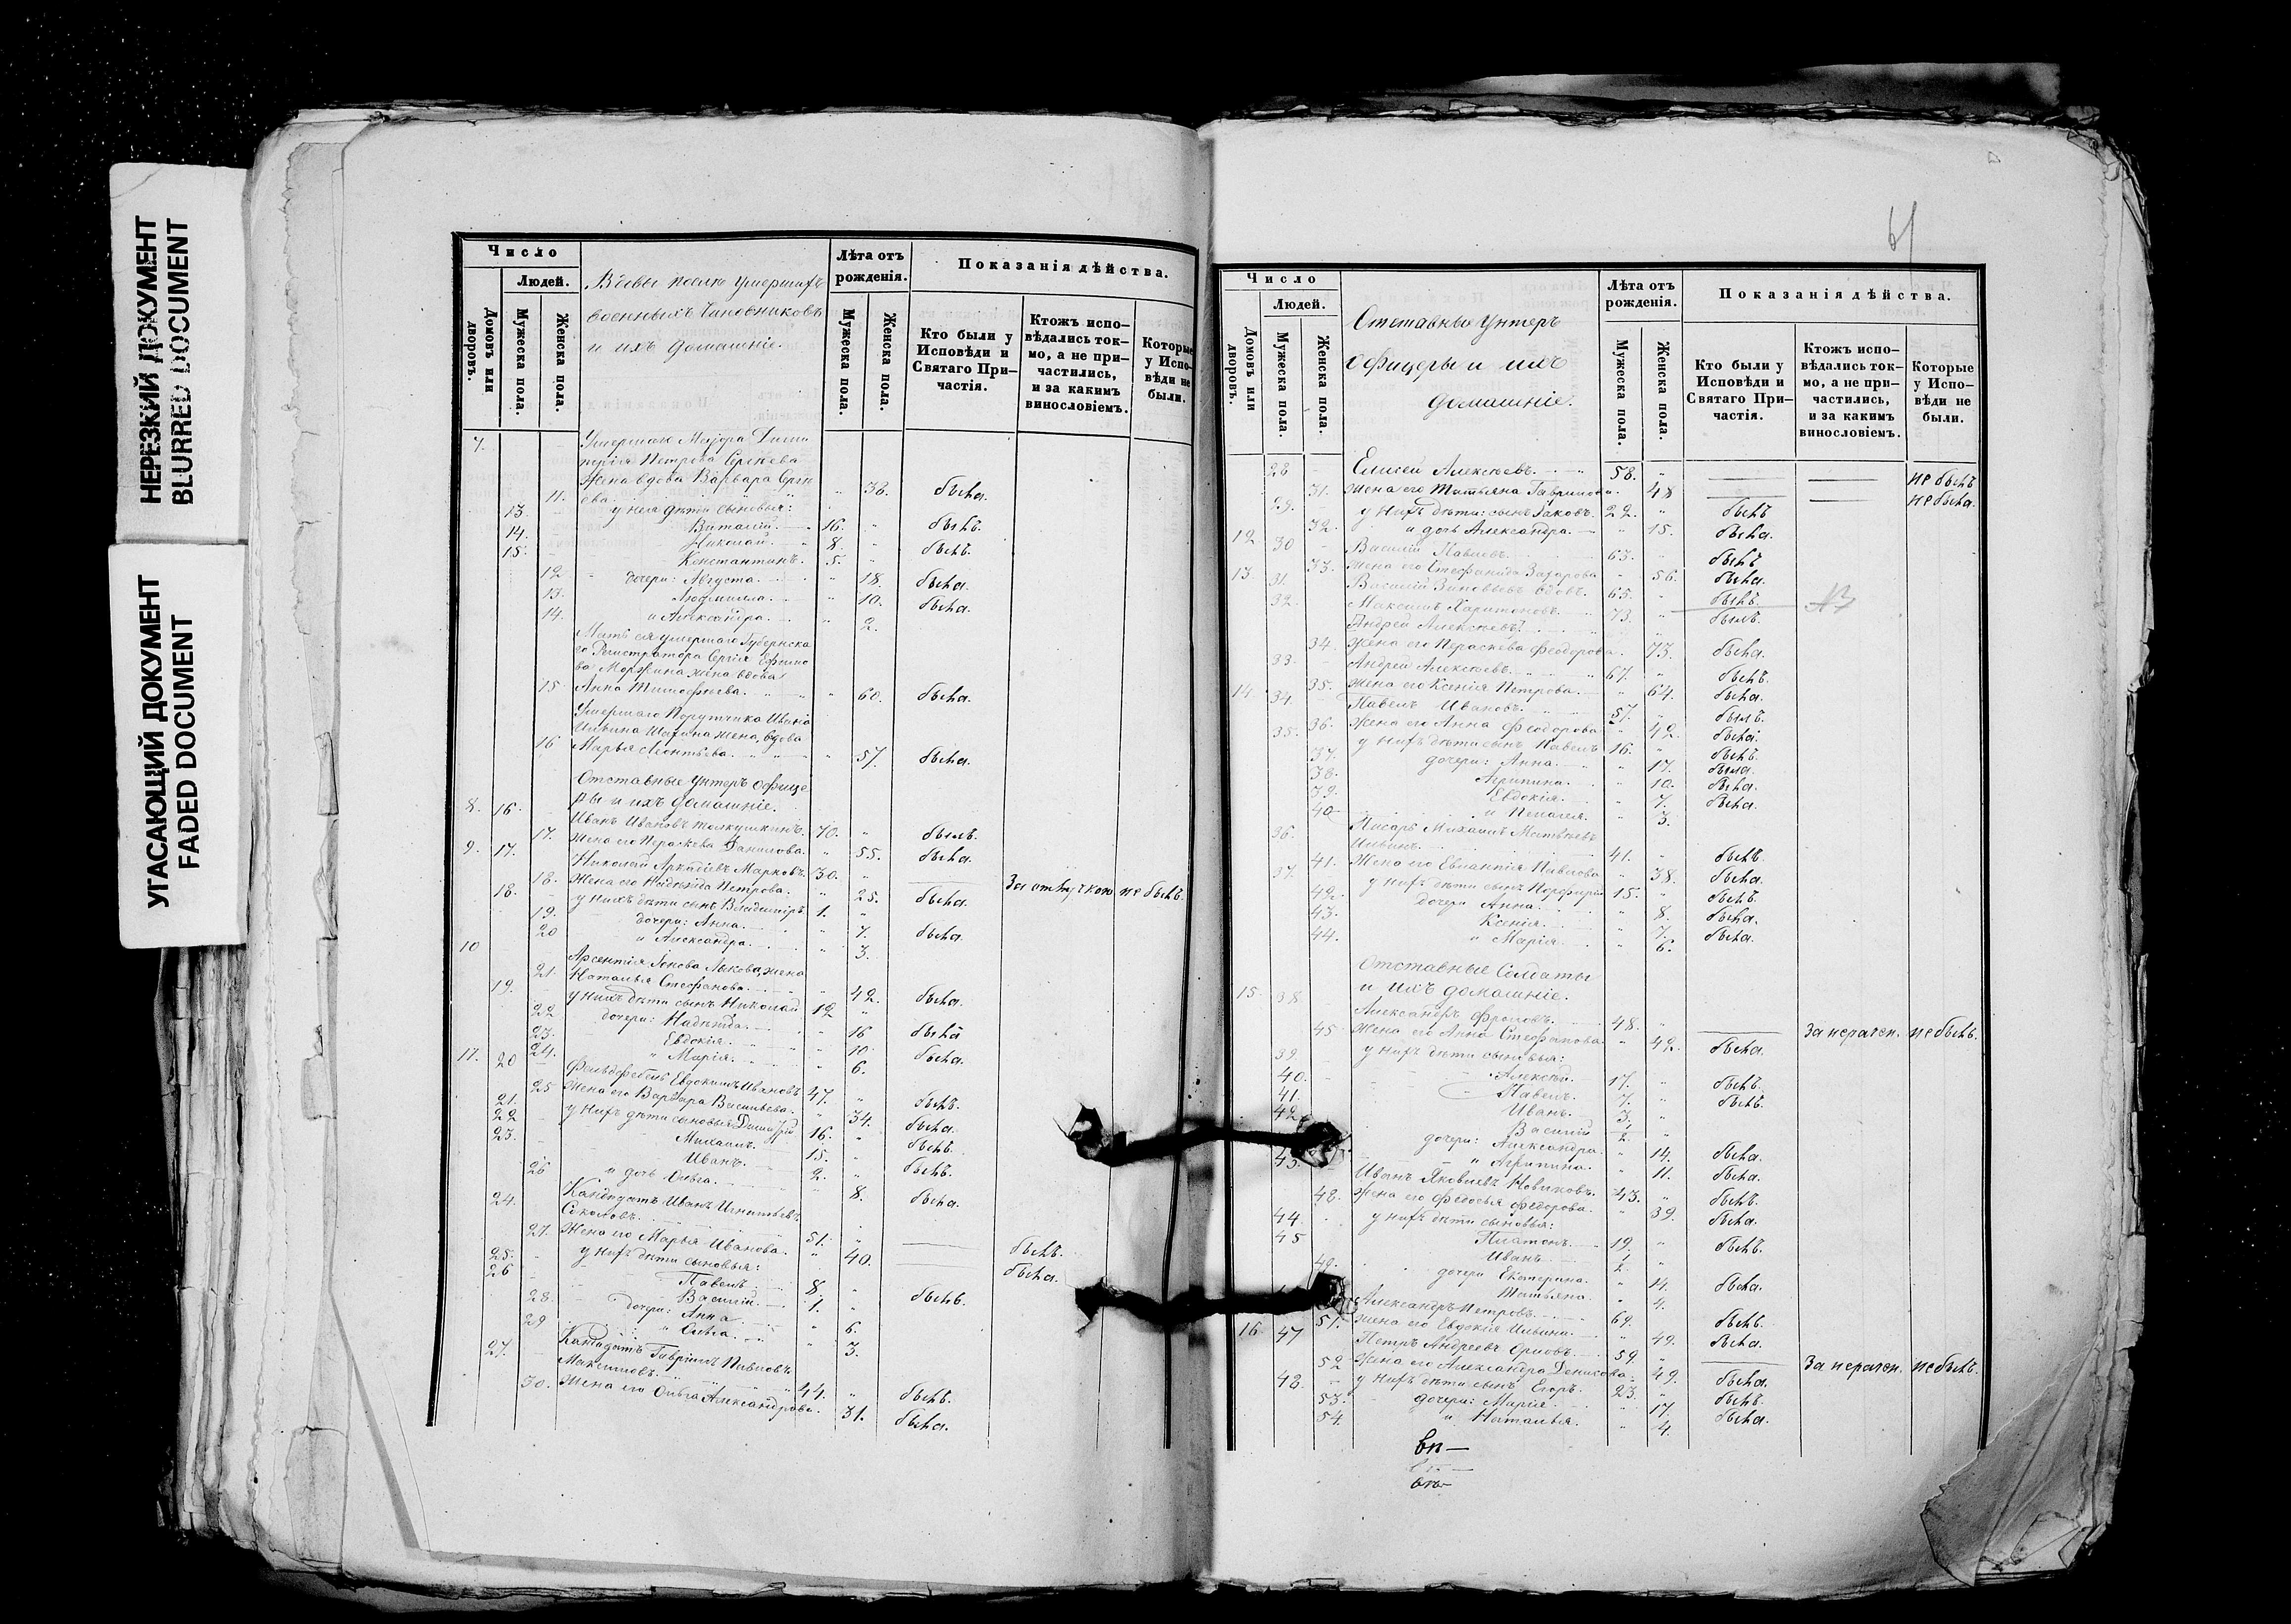 НЕРЕЗКИЙ ДОКУМЕНТ
BLURRED DOCUMENT
УГАСАЮЩИЙ ДОКУМЕНТ
FADED DOCUMENT
Число
Людей.
Домовъ или дворовъ.
Мужеска пола.
Женска пола.
Вдовы после умершихъ
военныхъ Чиновниковъ
и ихъ домашніе.
Лѣта отъ рожденія.
Мужеска пола.
Женска пола.
Показанія дѣйства.
Кто были у Исповѣди и Святаго При-частія.
Ктожъ испо-вѣдались ток-мо, а не при-частились, и за какимъ винословіемъ.
Которые у Испо-вѣди не были.
7. Умершаго Маіора Дими
трія Петрова Сергѣева
жена вдова Варвара Серги
11. ева. " 38. была.
у нея дѣти сыновья:
13. Виталій. 16. " былъ.
14. Николай. 8. " былъ.
15. Константинъ. 5. "
12. дочери: Августа. " 18. была.
13. Людмилла. " 10. была.
14. и Александра. " 2.
Мать ея умершаго Губернска
го Регистратора Сергія Ефимо
ва жена вдова
15 Анна Тимофѣева. " 60. была.
Умершаго Порутчика Ивана
Ильина жена, вдова
16 Марья Леонтьева. " 57. была.
Отставные Унтеръ Офице
ры и ихъ домашніе.
8. 16. Иванъ Ивановъ Толкушкинъ. 70. " былъ.
17. Жена его Параскева Данилова. " 55. была.
9. 17. Николай Аркадіевъ Марковъ. 30. " За отлучкою не былъ.
18. Жена его Надежда Петрова. " 25. была.
18. у нихъ дѣти сынъ Владиміръ. 1. "
19. дочери: Анна. " 7. была.
20 и Александра. " 3.
10 Арсентія Лыкова, жена
21. Наталья Стефанова. " 42. была.
19. у нихъ дѣти сынъ Николай 12 "
22 дочери: Надежда. " 16 была
23. Евдокія. " 10. была.
24. " Марія. " 6.
11. 20 Фельдфебель Евдокимъ Ивановъ 47. " былъ.
25 Жена его Варвара Васильева. " 34. была.
21. у нихъ дѣти сыновья Димитрій 16. " былъ.
22 Михаилъ. 15. " былъ.
23. Иванъ. 2. "
26 и дочь Ольга. 8. была.
24. Кандидатъ Иванъ Игнатьевъ
Соколовъ. 51. " былъ.
27. Жена его Марья Иванова. " 40. была.
у нихъ дѣти сыновья:
25. Павелъ. 8. " былъ.
26 Василій. 1. "
28. дочери: Анна " 6.
29 " Ольга. " 3.
27. Кандидатъ Гавріилъ Павловъ
Максимовъ. 44. " былъ.
30. Жена его Ольга Александрова. 31. была.
61
Число
Людей.
Домовъ или дворовъ.
Мужеска пола.
Женска пола.
Отставные Унтеръ
Офицеры и ихъ
домашніе.
Лѣта отъ рожденія.
Мужеска пола.
Женска пола.
Показанія дѣйства.
Кто были у Исповѣди и Святаго При-частія.
Ктожъ испо-вѣдались ток-мо, а не при-частились, и за какимъ винословіемъ.
Которые у Испо-вѣди не были.
28 Елисей Алексѣевъ. 58. " не былъ
31. Жена его Татьяна Гаврилова. " 48 не была.
29. у нихъ дѣти: сынъ Іаковъ. 22. " былъ
32. и дочь Александра. " 15. была.
12 30 Василій Павловъ. 63. " былъ
33. Жена его Стефанида Захарова " 56. была.
13. 31. Василій Зиновьевъ вдовъ. 65. " былъ.
32. Максимъ Харитоновъ. 73. " былъ.
Андрей Алексѣевъ.
34. Жена его Параскева Феодорова. 73. была.
33. Андрей Алексѣевъ. 67. " былъ.
35. Жена его Ксенія Петрова. " 64. была.
14. 34. Павелъ Ивановъ. 57. " былъ.
36. Жена его Анна Феодорова. " 42. была.
35. у нихъ дѣти: сынъ Павелъ 16. " былъ.
37. дочери: Анна. " 17. была.
38. Агрипина. " 10. была.
39. Евдокія. " 7. была.
40 и Пелагея. " 3.
36. Писарь Михаилъ Матвѣевъ
Ильинъ. 41. " былъ.
41. Жена его Евлампія Павлова " 38. была.
37. у нихъ дѣти сынъ Порфирій 15. " былъ.
42. дочери Анна. " 8. была.
43. Ксенія. " 7. была.
44. " Марія. " 6.
Отставные Солдаты
и ихъ домашніе.
15. 38 Александръ Фроловъ. 48. " За нерачен. не былъ.
45 Жена его Анна Стефанова. " 42. была.
у нихъ дѣти сыновья:
39. Алексѣй. 17. " былъ.
40. Павелъ. 7. " былъ.
41. Иванъ. 3. "
42. Василій "
дочери: Александра. " 14. была.
" Агрипина. " 11. была.
43. Иванъ Яковлевъ Новиковъ. 43. " былъ.
48. Жена его Федосья Федорова. " 39. была.
у нихъ дѣти сыновья:
44. Платонъ. 19. " былъ.
45 Иванъ "
49. дочери Екатерина. " 14. была.
Татьяна. " 4.
Александръ Петровъ. 69. " былъ.
51. Жена его Евдокія Ильина. " 49. была.
16 47 Петръ Андреевъ Орловъ. 59. " За нерачен. не былъ.
52 Жена его Александра Денисова. " 49. была.
48. у нихъ дѣти сынъ Егоръ. 23. " былъ.
53. дочери: Марія. " 17. была.
54. и Наталья. " 4.